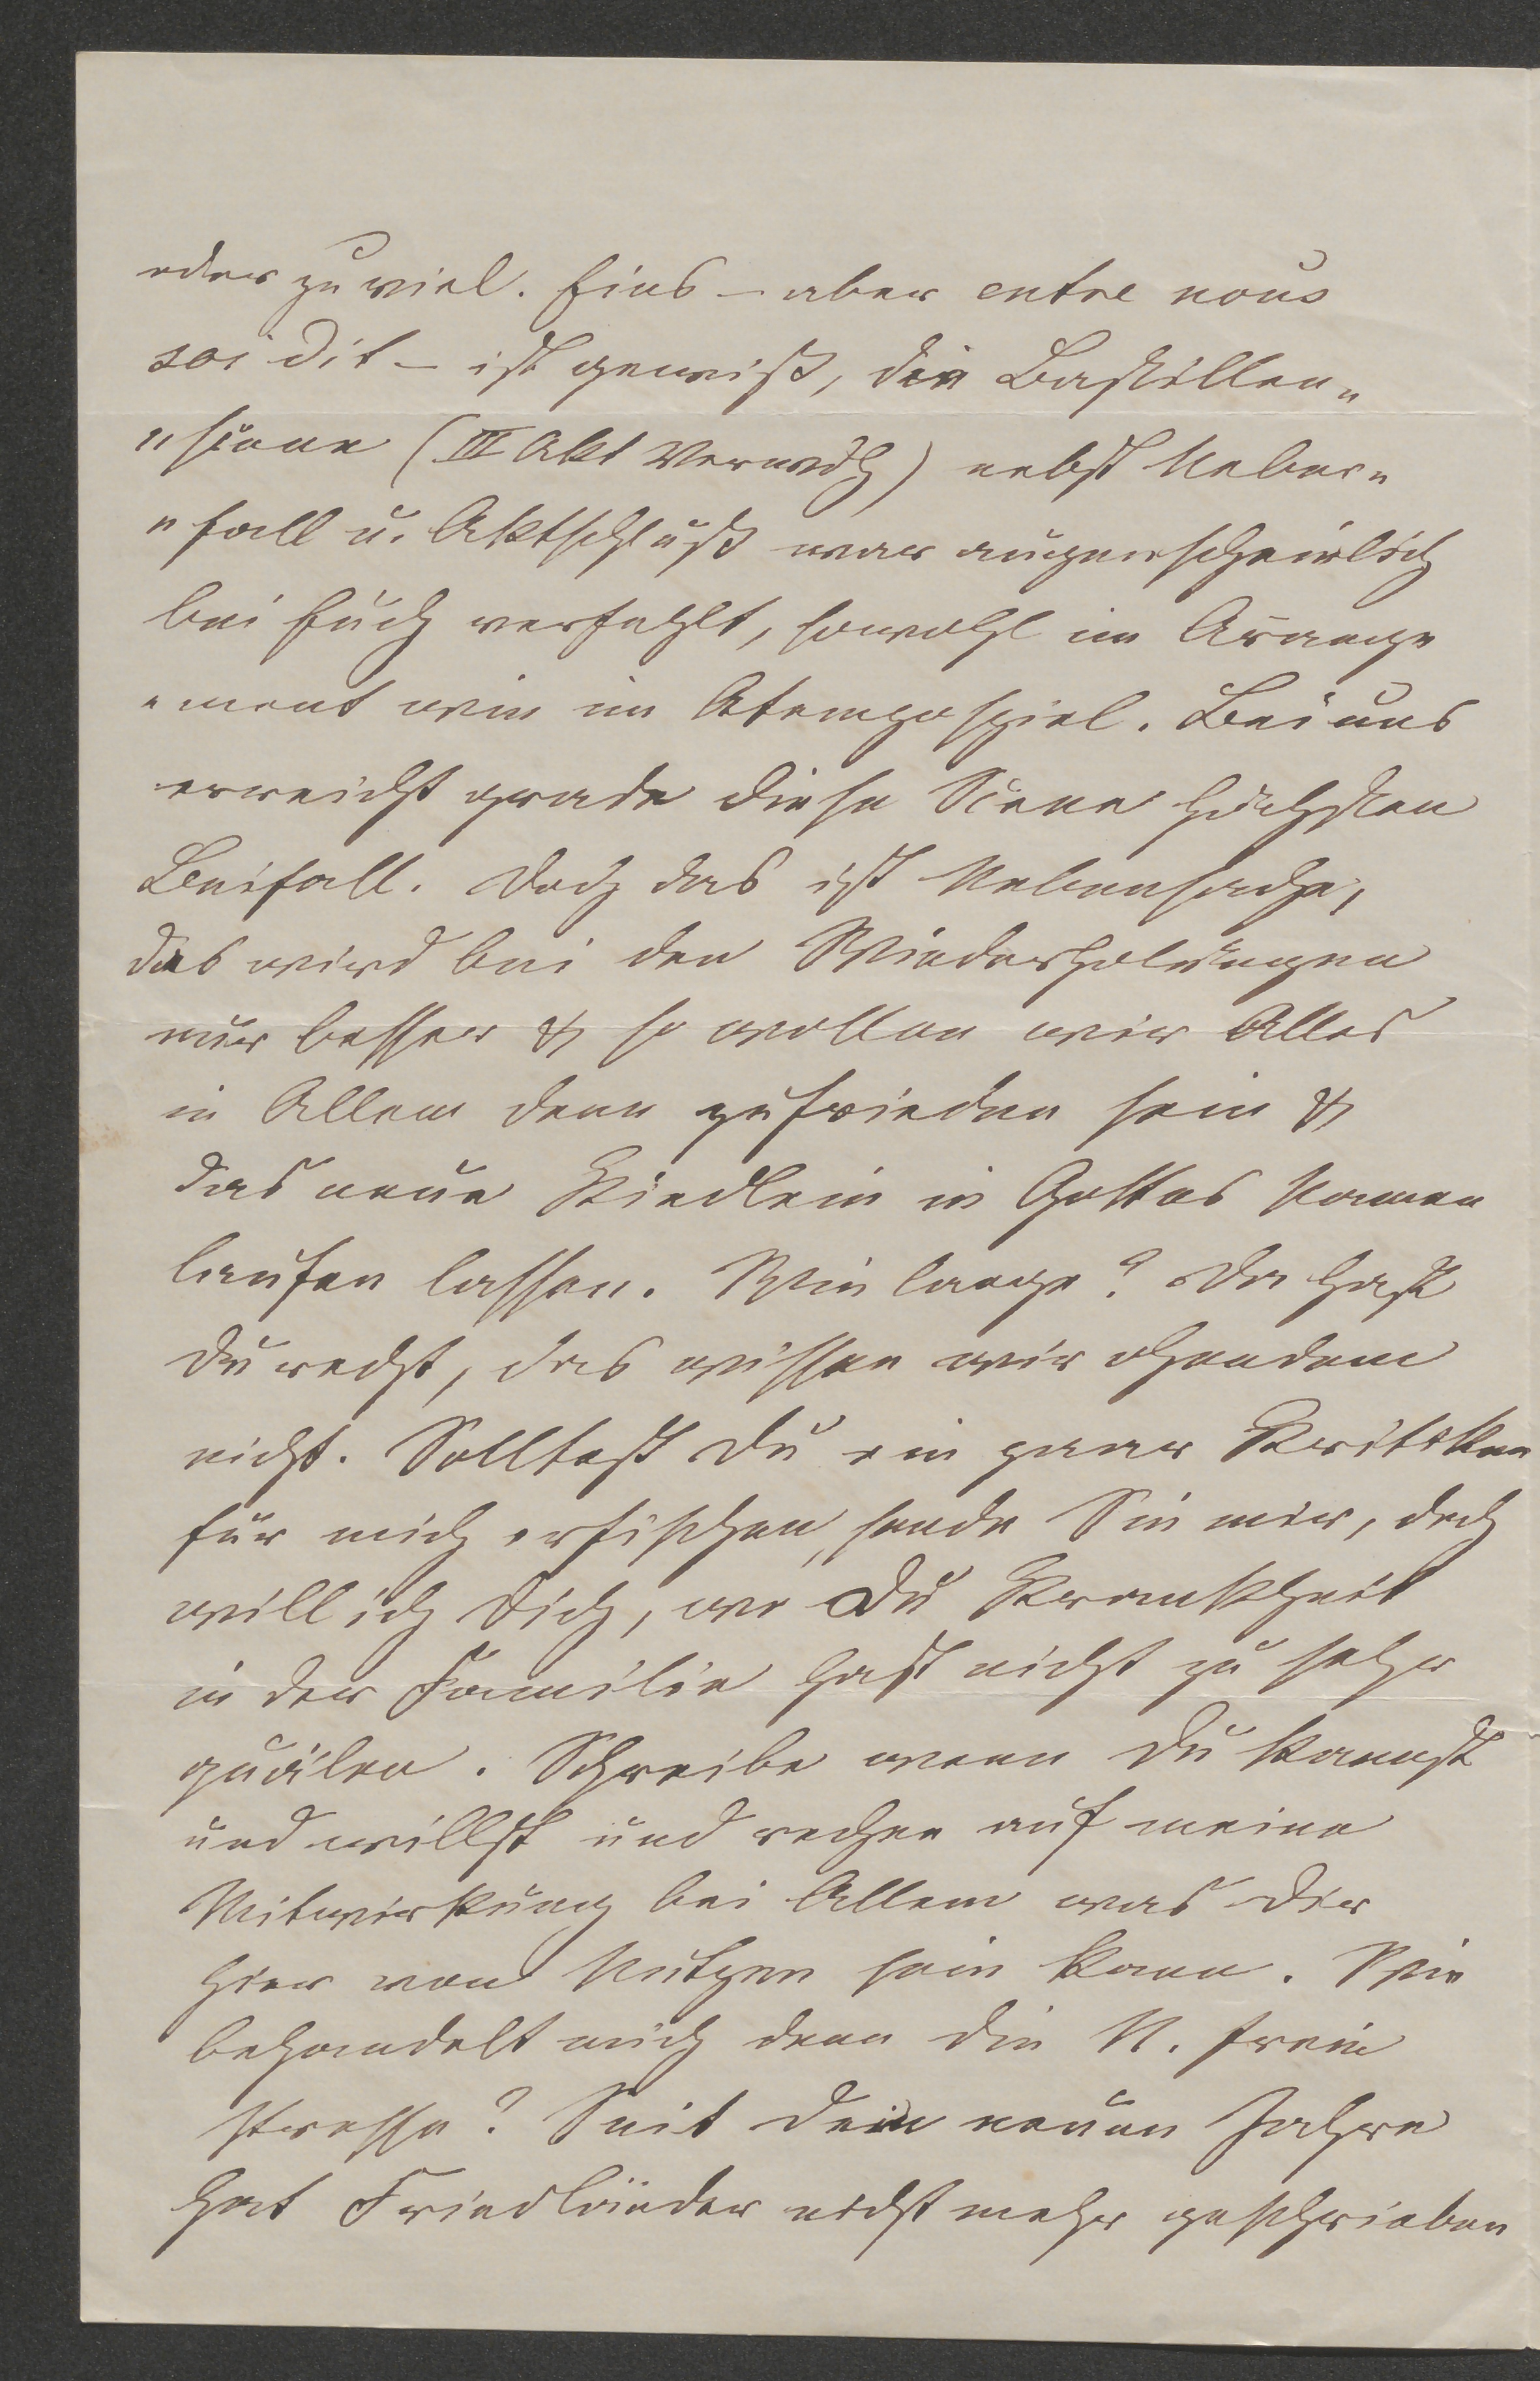 oder zu viel. Eins – aber entre nous
soi dit – ist gewiß, die Bastillen„
„scene (III Akt Verwdlg) nebst Ueber„
„fall u. Aktschluß war augenscheinlich
bei Euch verfehlt, sowohl im Arange
„ment wie im Atempospiel. Bei uns
erreicht grade diese Scene höchsten
Beifall. Doch das ist Nebensache,
das wird bei den Wiederholungen
nur besser & so wollen wir Alles
in Allem denn zufrieden sein &
das neue Kindlein in Gottes Namen
laufen lassen. Wie lange? Da hast
Du recht, das wissen wir ohendem
nicht. Solltest Du ein paar Kritiken
für mich erfischen, sende Sie mir, doch
will ich Dich, wo Du Krankheit
in der Familie hast nicht zu sehr
quälen. Schreibe wenn Du kannst
und willst und rechne auf meine
Mitwirkung bei Allem was Dir
hier von Nutzen sein kann. Wie
behandelt mich denn die N. freie
Presse? Seit dem neuen Jahre
hat Friedländer nicht mehr geschrieben